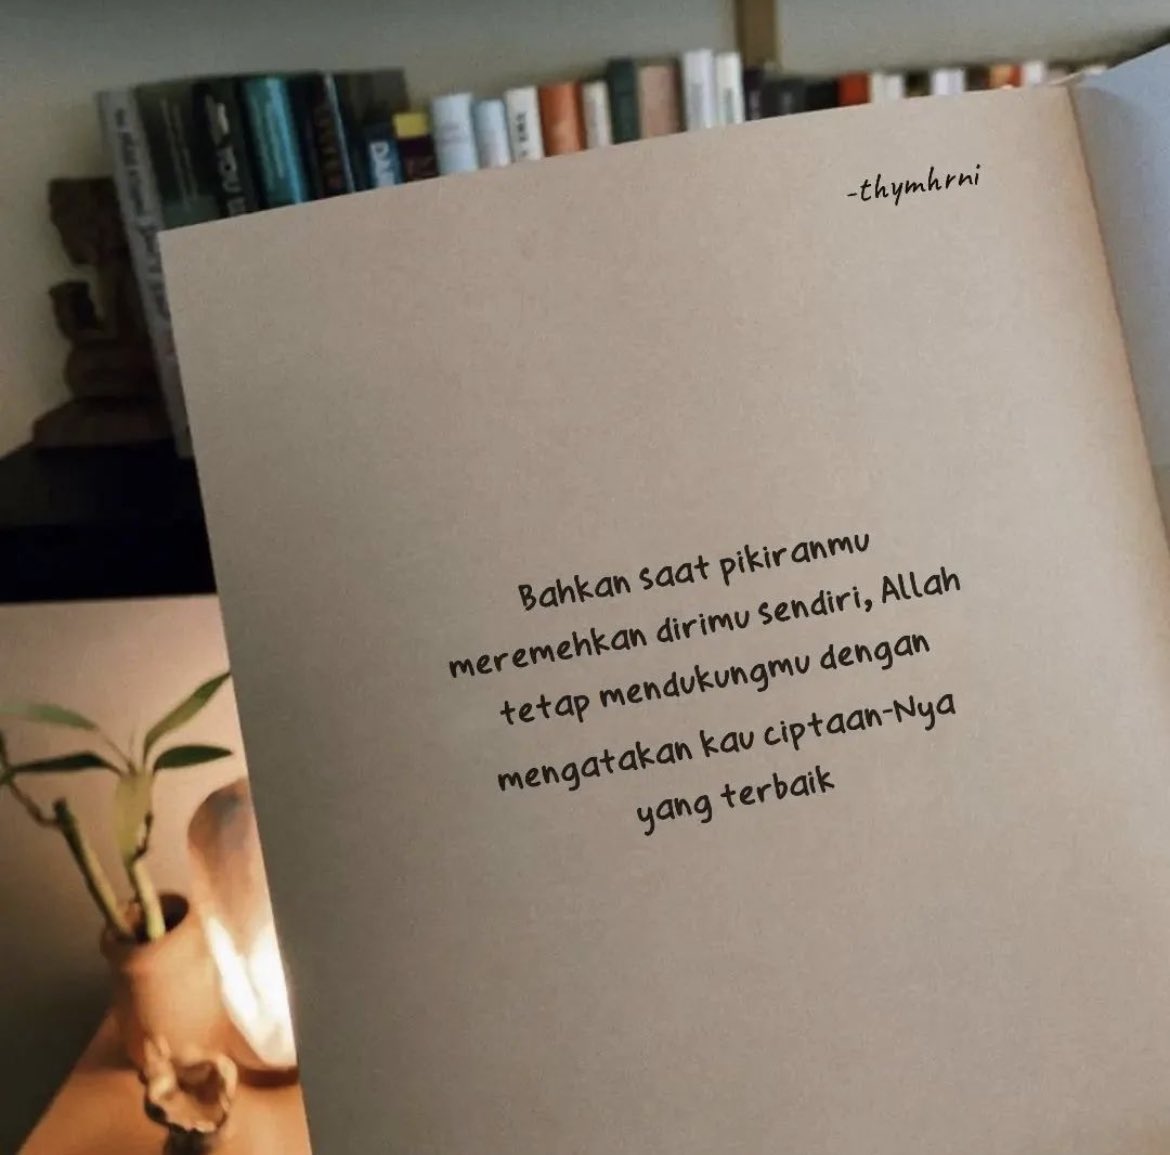 -thymhrni
Bahkan saat pikiranmu
meremehkan dirimu sendiri, Allah
tetap mendukungmu dengan
mengatakan kau ciptaan-Nya
yang terbaik
YOU
DAN
THE